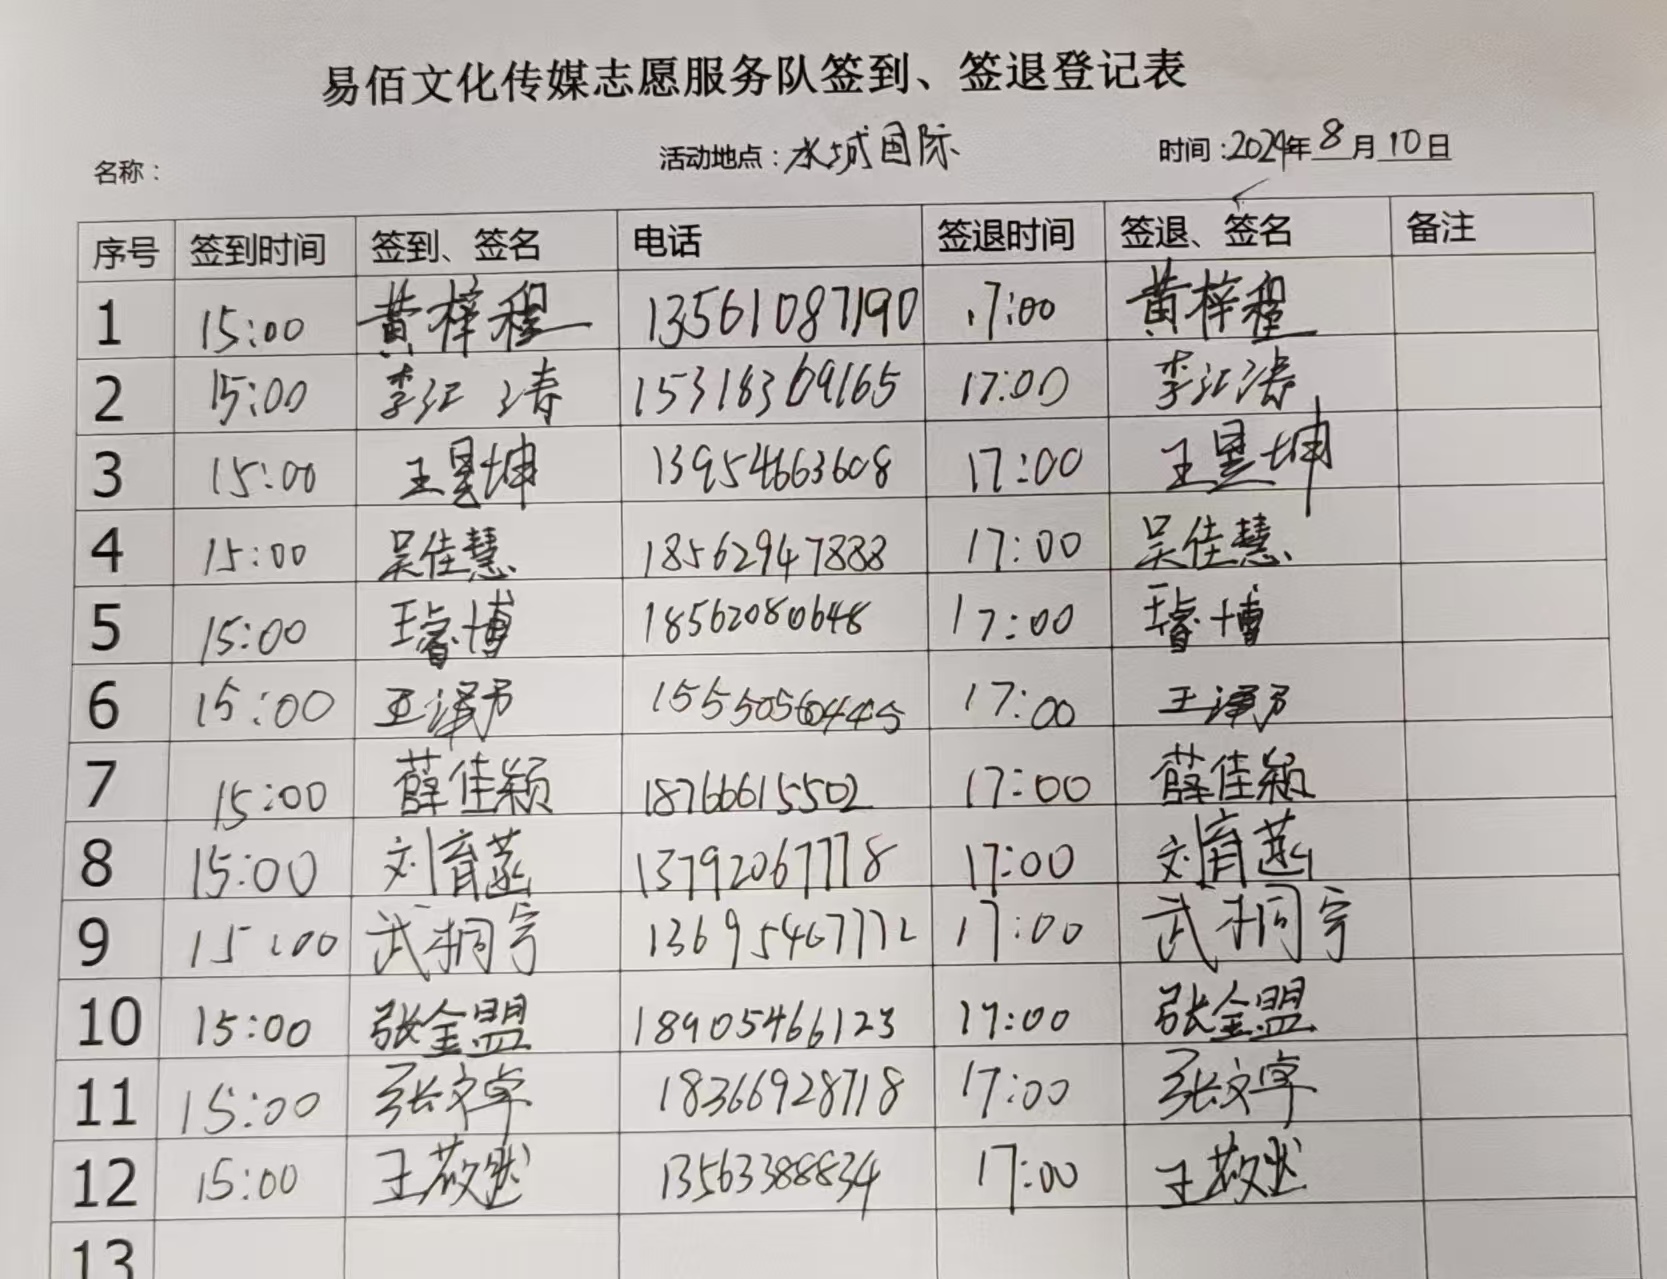 易佰文化传媒志愿服务队签到、签退登记表
名称： 活动地点：水城国际 时间：2024年8月10日
序号 签到时间 签到、签名 电话 签退时间 签退、签名 备注
1 15:00 黄梓程 13561087190 17:00 黄梓程
2 15:00 李江涛 15318369165 17:00 李江涛
3 15:00 王昱坤 13954663608 17:00 王昱坤
4 15:00 吴佳慧 18562947888 17:00 吴佳慧
5 15:00 王睿博 18562080648 17:00 王睿博
6 15:00 15550560445 17:00
7 15:00 薛佳颖 18766615502 17:00 薛佳颖
8 15:00 刘育菡 13792067778 17:00 刘育菡
9 15:00 武桐宇 13695467772 17:00 武桐宇
10 15:00 张金盟 18905466123 17:00 张金盟
11 15:00 张文卓 18366928718 17:00 张文卓
12 15:00 13563388834 17:00
13